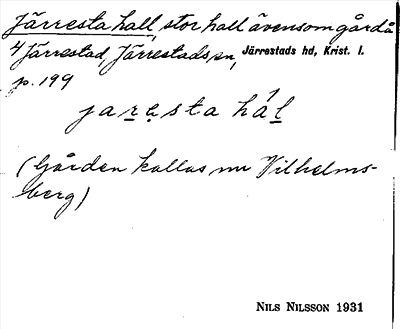 Järresta hall, stor hall ävensom gård å
4 Järrestad, Järrestads sn, Järrestads hd, Krist. l.
p. 199
jaręsta hál
(Gården kallas nu Vilhelms-
berg)
NILS NILSSON 1931